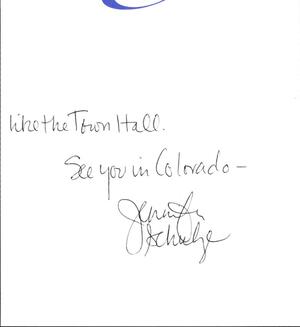 like the Town Hall.
See you in Colorado –
Jennifer
Schulze